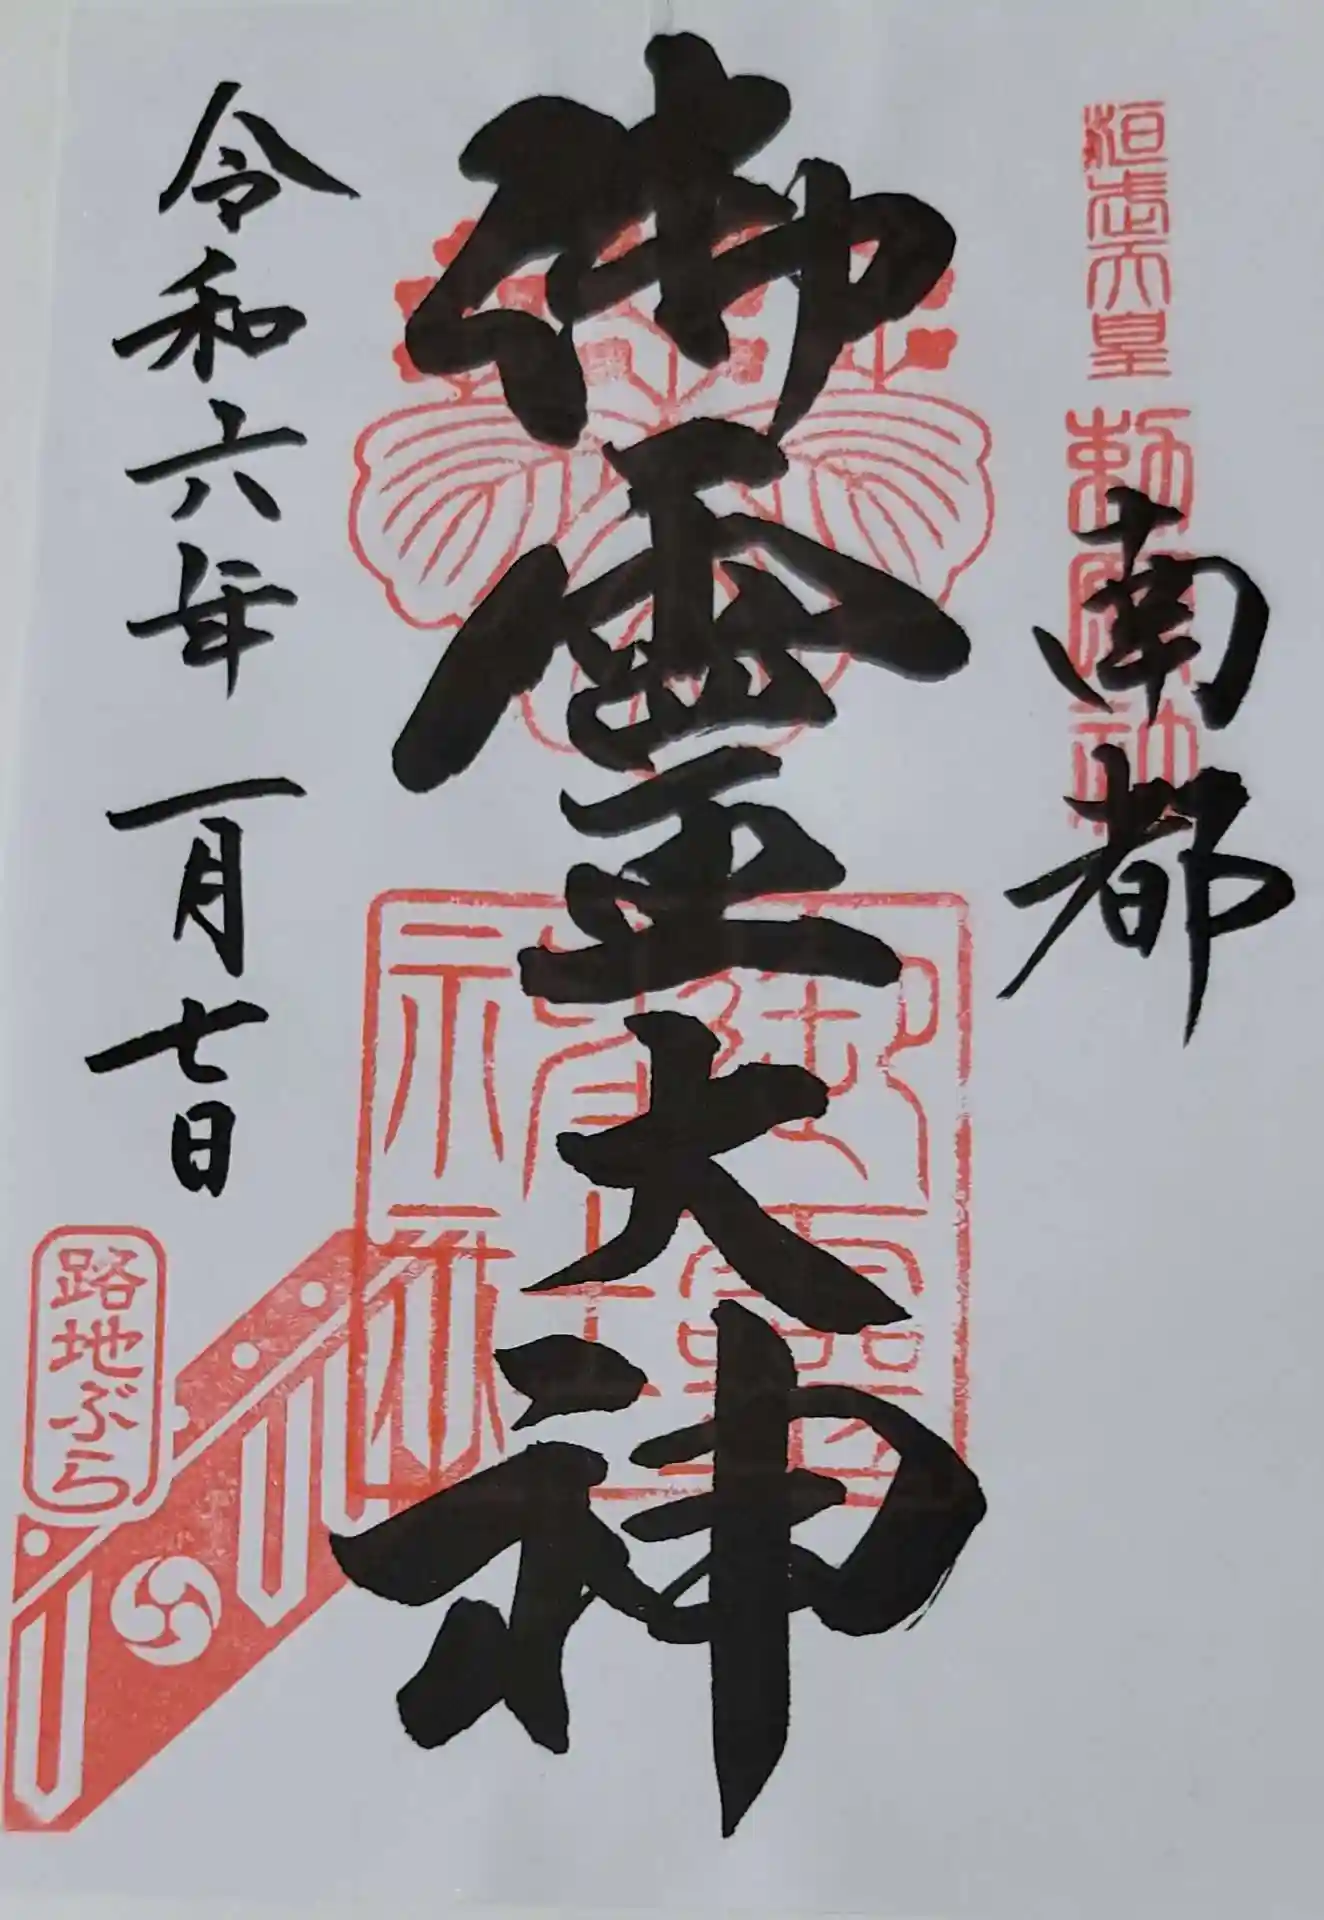 桓武天皇
勅願社
南都
御霊大神
御霊神社
令和六年一月七日
路地ぶら